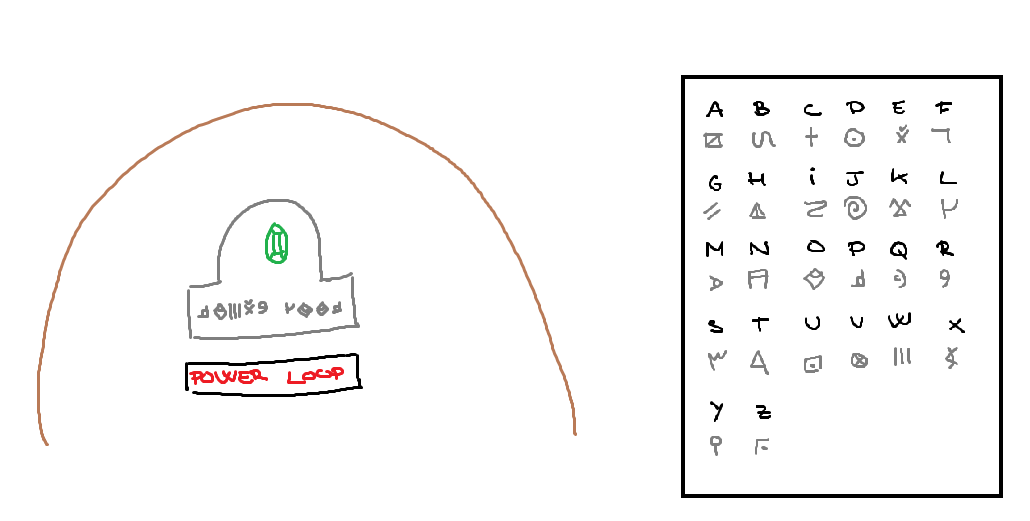 POWER LOOP
A B C D E F
G H i J K L
M N O P Q R
S T U V W X
Y Z